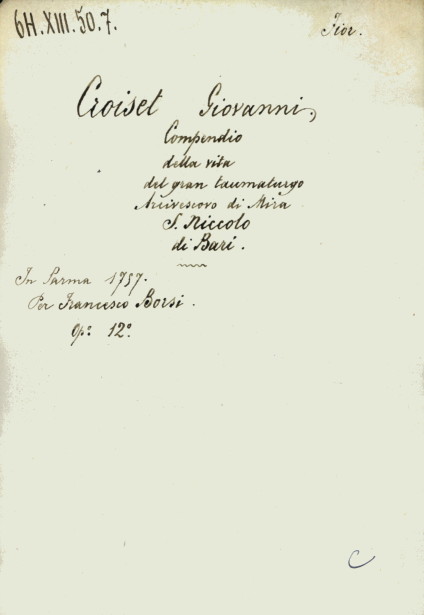 6H.XIII.50.7.
Fior.
Croiset Giovanni,
Compendio
della vita
del gran taumaturgo
Arcivescovo di Mira
S. Niccolo
di Bari.
In Parma 1757.
Per Francesco Borsi.
Op.° 12.°
C